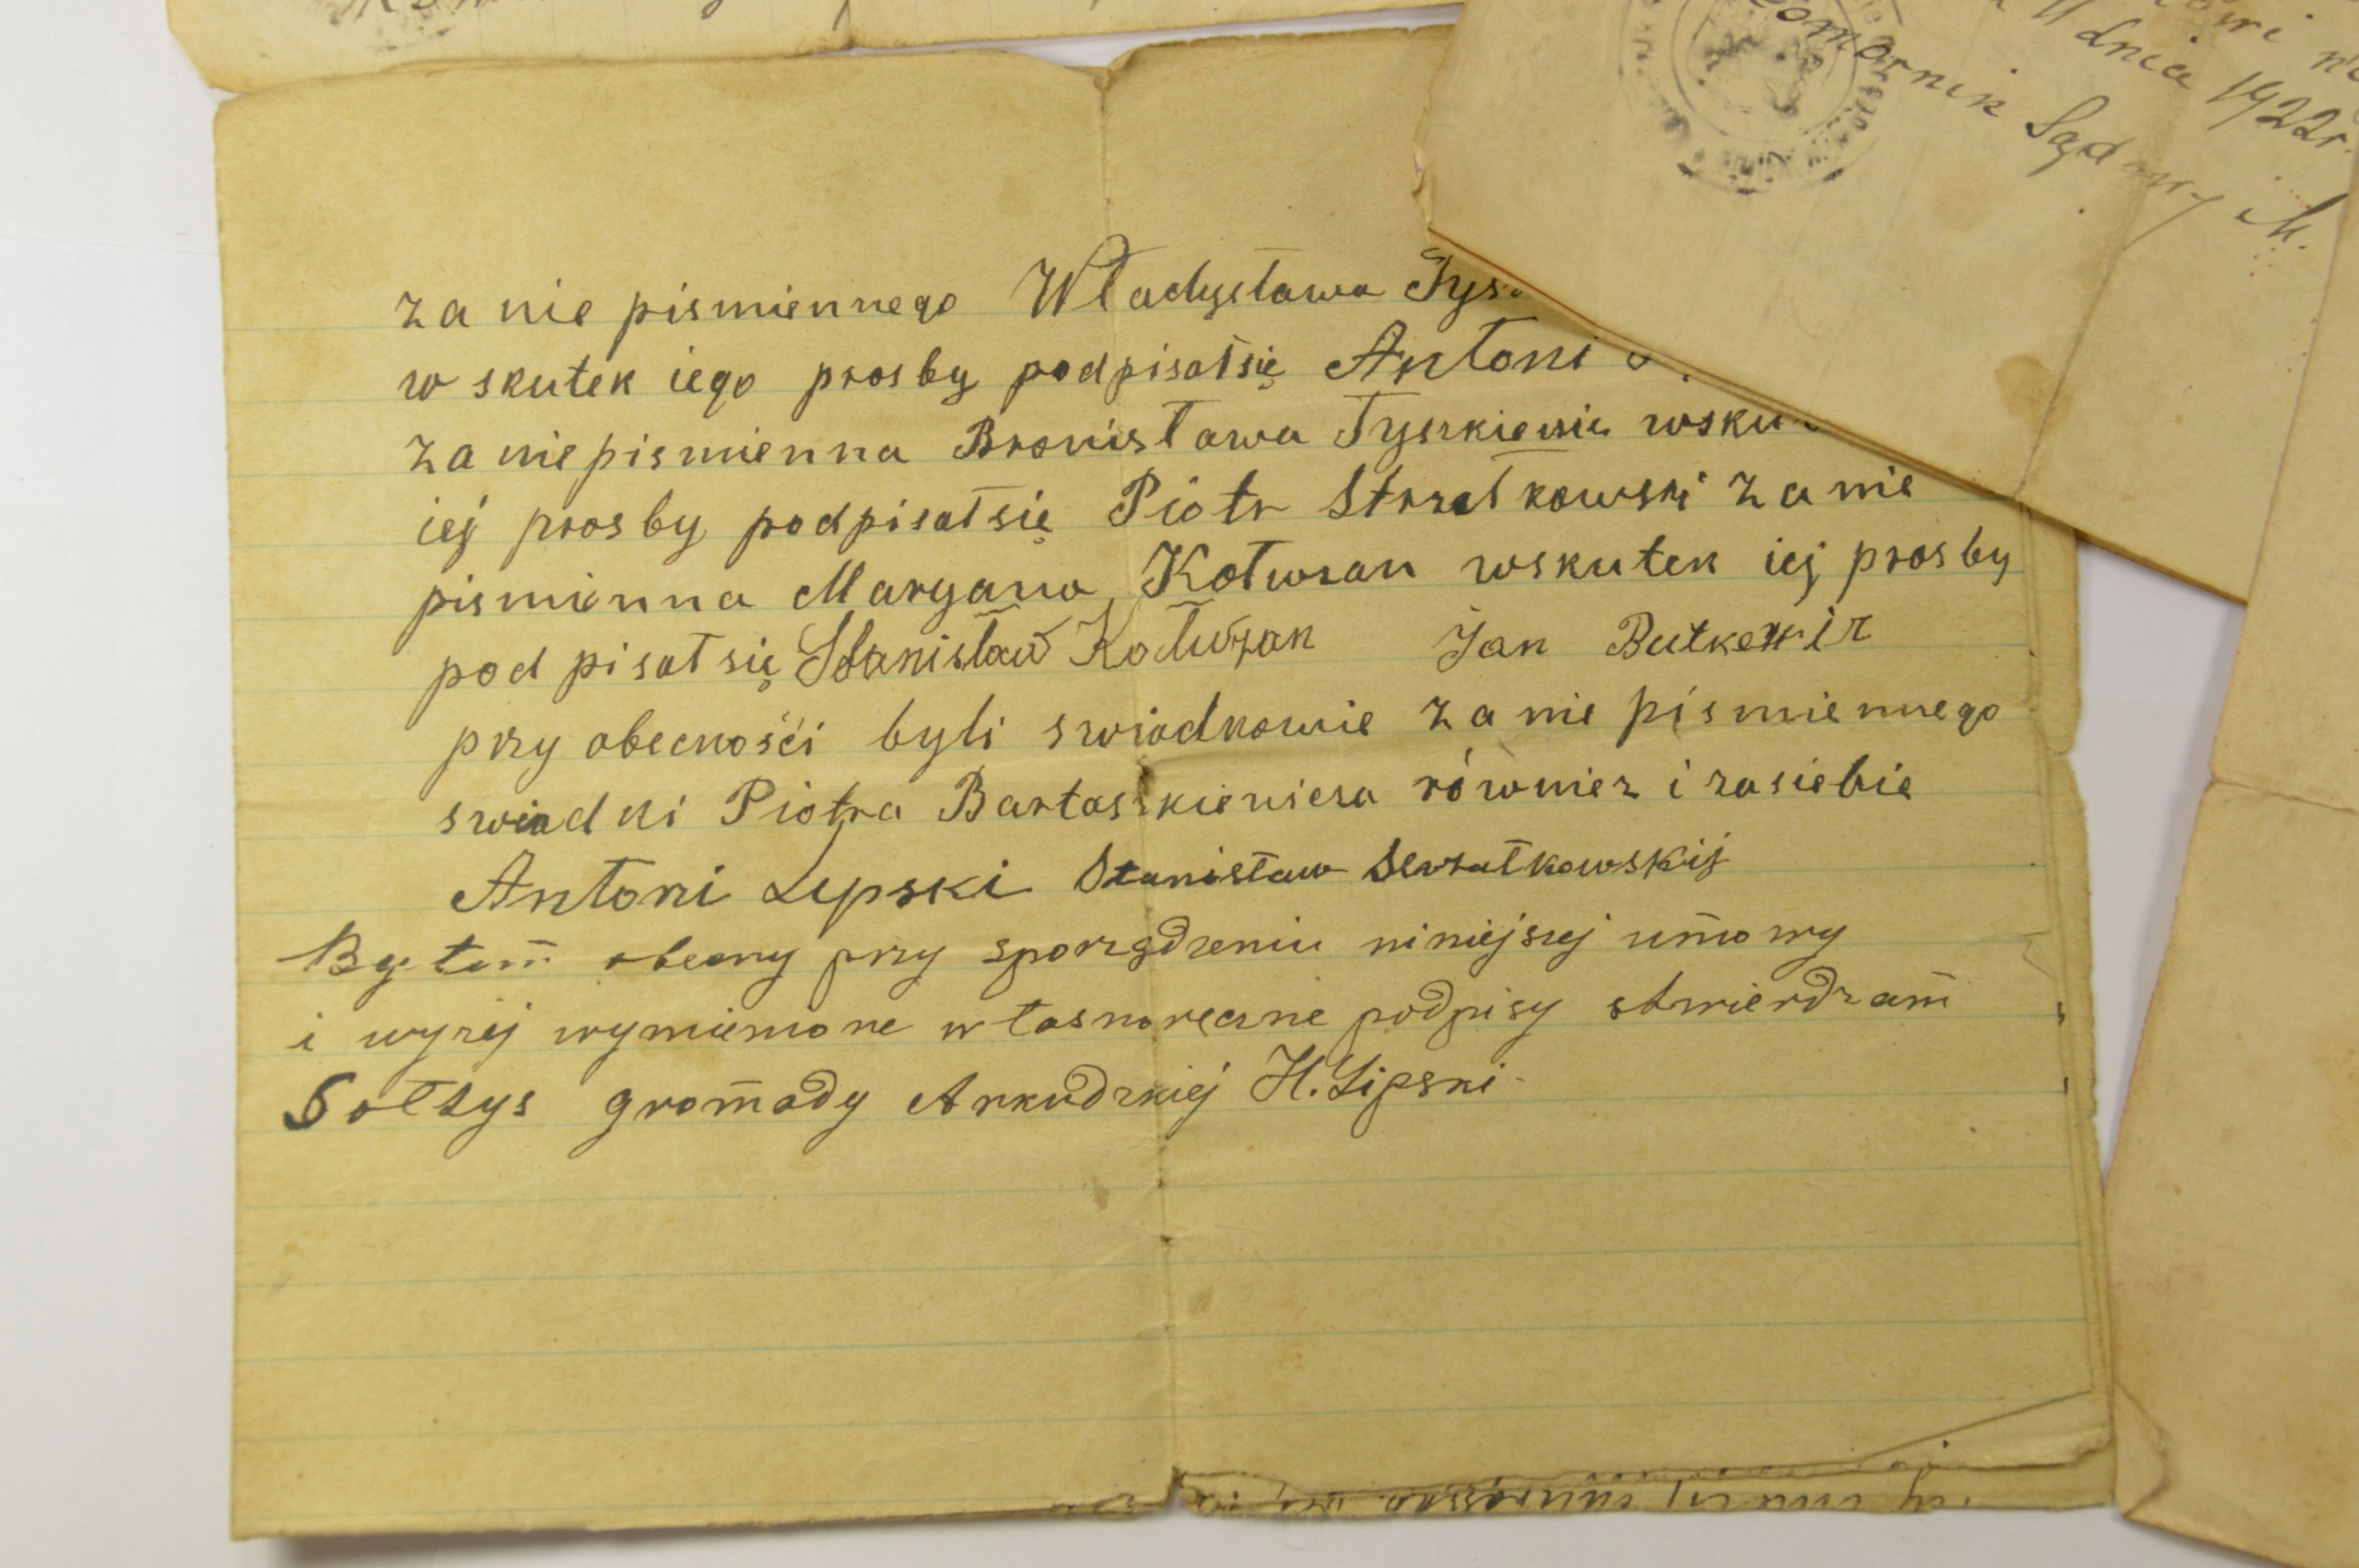 dnia 1922r.
Komornik Sądowy M.
za nie pismiennego Władysława
w skutek iego prosby podpisałsię Antoni
za niepismienna Bronisława Tyszkiewic wsku
iej prosby podpisałsię Piotr Strzałkowski za nie
pismienna Maryana Kotwzan wskutek iej prosby
pod pisałsię Stanisław Kotwzan Jan Butkewiz
przy obecnośći byli swiadkowie za nie pismiennego
swiadki Piotra Bartaszkiewicza równiez i zasiebie
Antoni Lipski Stanisław
Byłem obecny przy sporządzeniu niniejszej umowy
i wyzej wymienione własnoręczne podpisy stwierdzam
Sołtys gromady Arkudzkiej H. Lipski